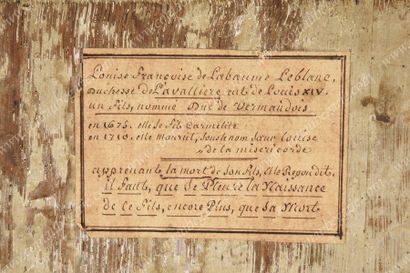 Louise françoise de Labaume Leblanc,
Duchesse de Lavalliere eut de Louis XIV.
un fils, nommé Duc de Vermandois
en 1675. elle se fit Carmélite
en 1710. elle mourut, sous le nom Sœur Louise
de la misericorde
apprenant la mort de son fils, elle Repondit.
il faut, que je Pleure la Naissance
de ce fils, encore Plus, que Sa Mort.